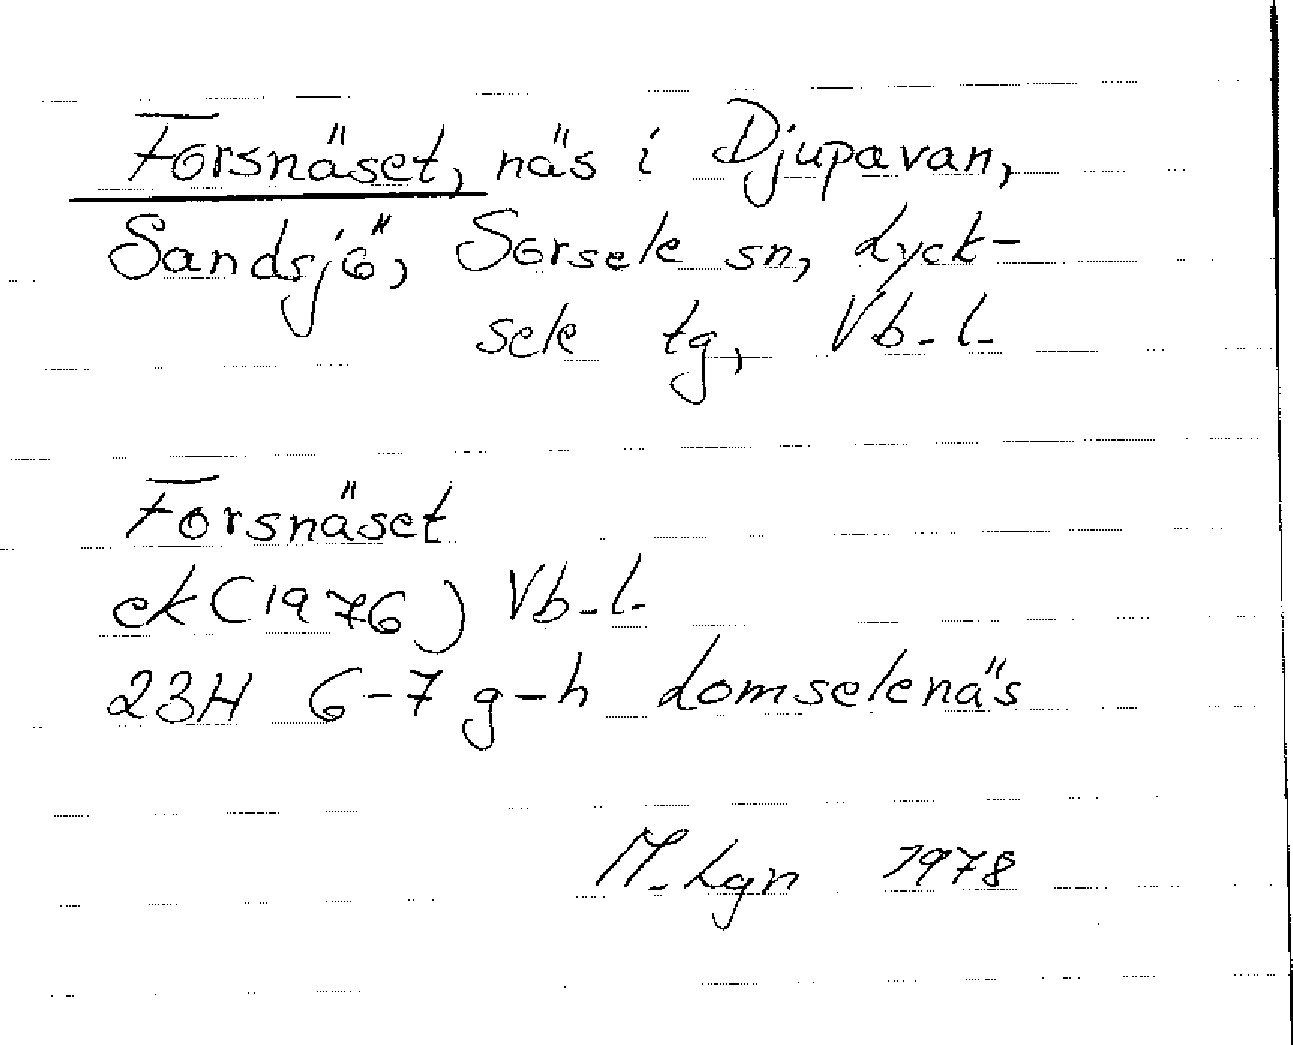 Forsnäset, näs i Djupavan,
Sandsjö, Sorsele sn, Lyck-
sele tg, Vb-l.
Forsnäset
ek (1976) Vb-l.
23H 6-7 g-h Lomselenäs
M. Lgn 1978